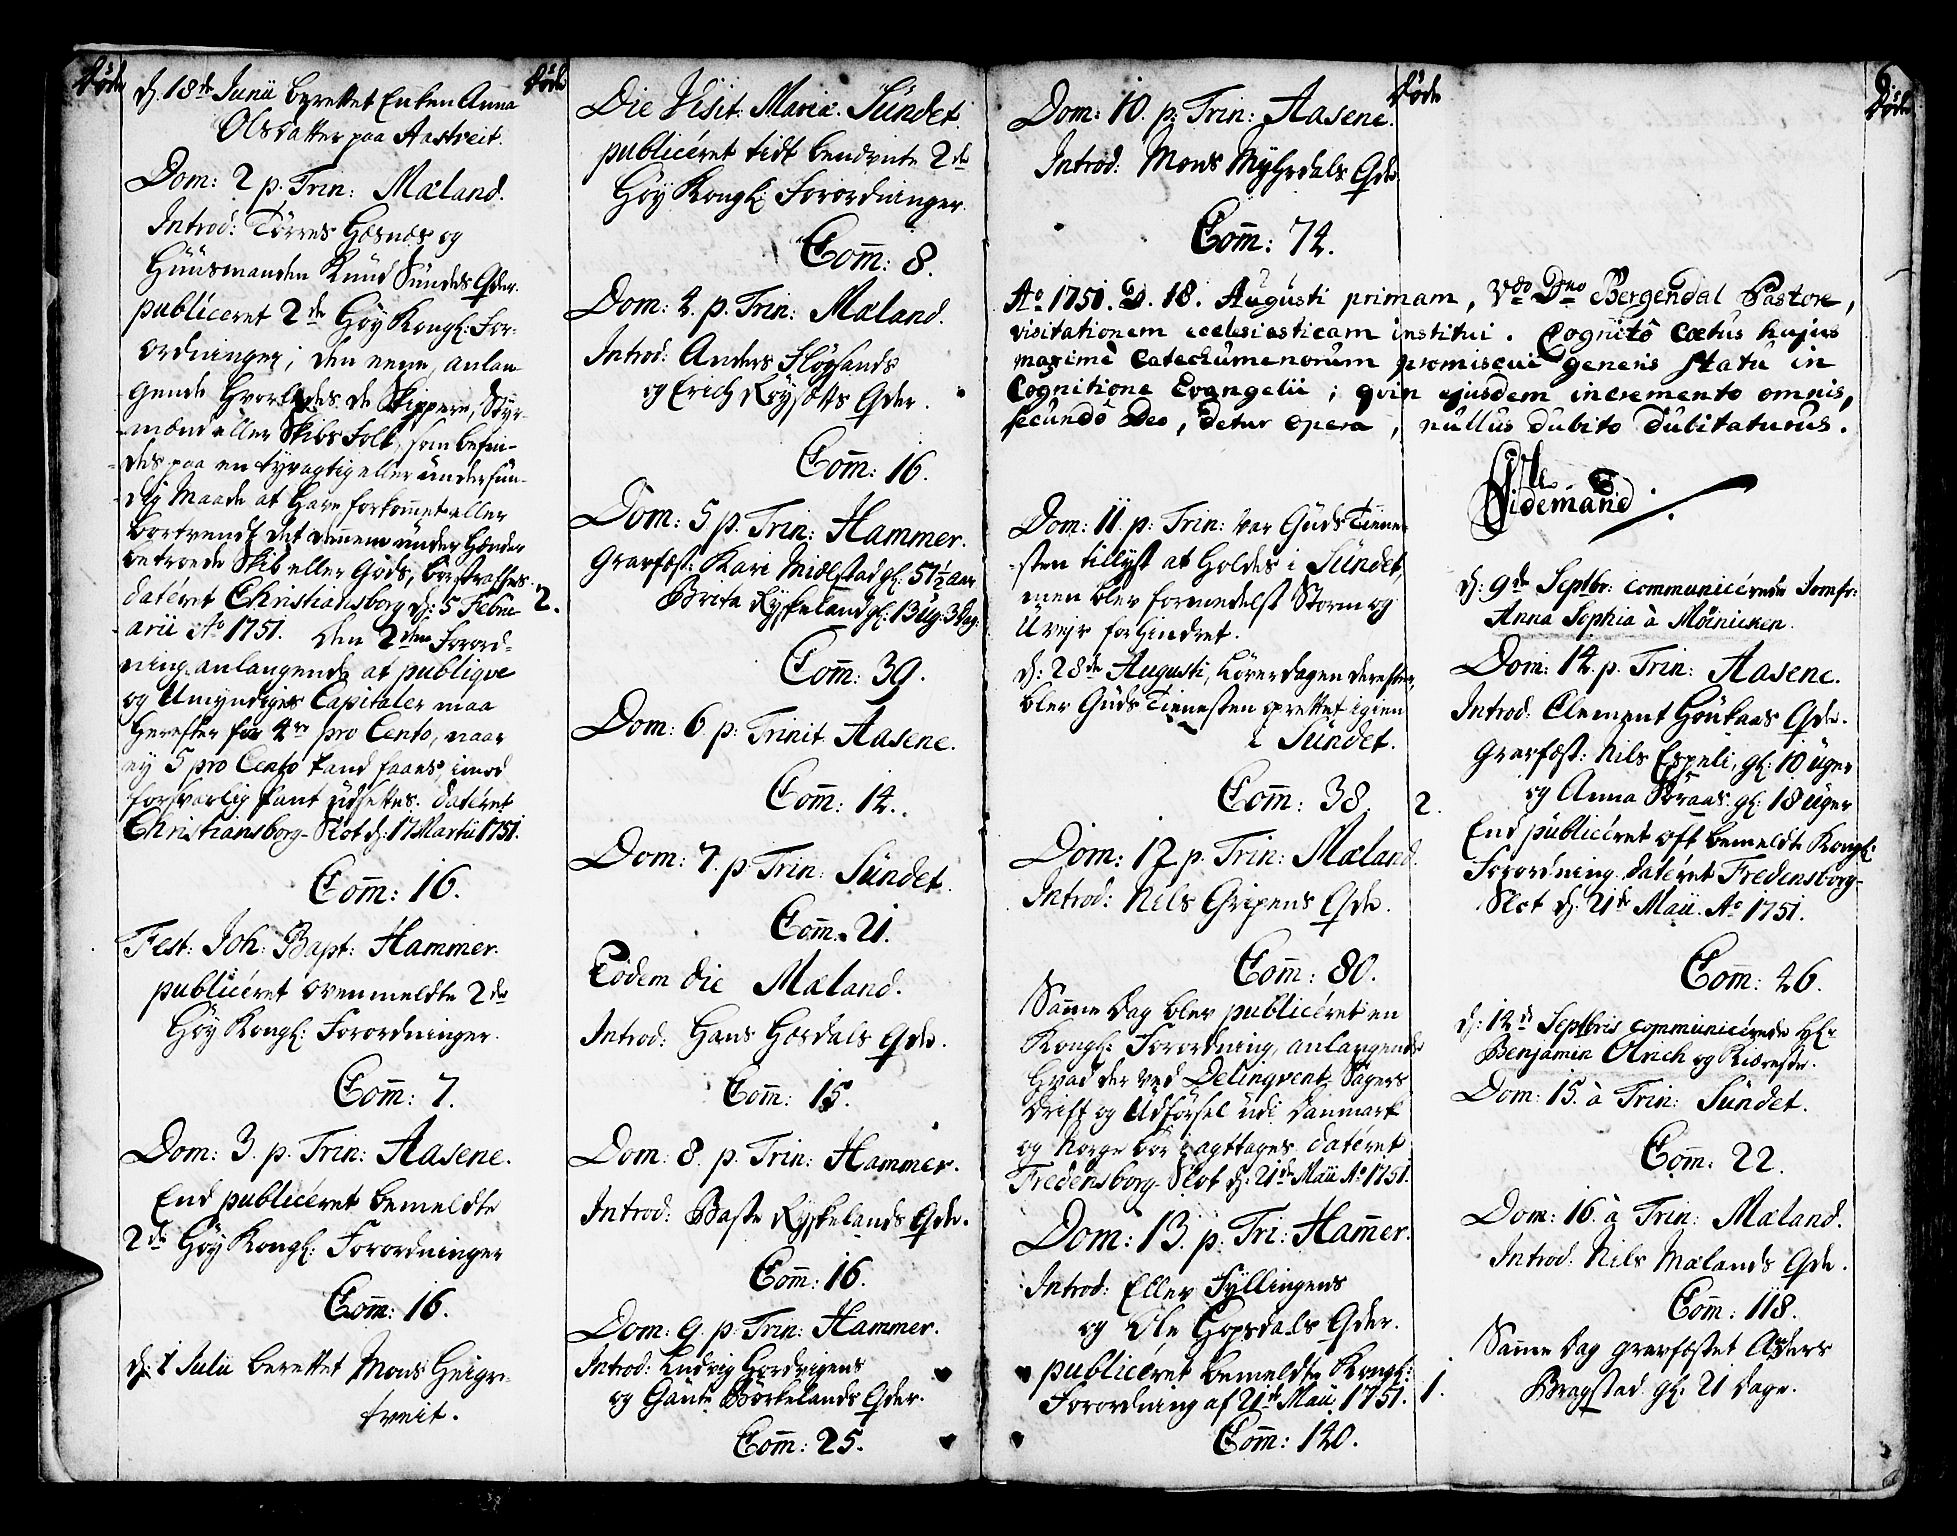 Døde
d. 18de Junii berettet Enken Anna
Olsdatter paa Aastveit.
Dom: 2 p. Trin: Mæland.
Introd: Tørres Hæsnæs og
Huusmanden Knud Sundes Qder.
publiceret 2de Høy Kongl: For-
ordninger; den eene, anlan-
gende hvorledes de Skippere, Styr-
mænd eller Skibs Folk, som befin-
des paa en tyvagtig eller underfun-
dig Maade at have forkommet eller
bortvendt det dennem under Hænder
betroede Skib eller Gods, bør straffes.
datéret Christiansborg d: 5 Febru-
arii Ao 1751. Den 2den Forord-
ning anlangende at publiqve
og Umyndiges Capitaler maa
herefter for 4re pro Cento, naar
ey 5 pro Cento kand faaes, imod
forsvarlig Pant udsettes. datéret
Christiansborg-Slot d: 17 Martii 1751.
Com̄: 16.
Fest: Joh: Bapt: Hammer.
publicéret ovenmeldte 2de
Høy Kongl: Forordninger.
Com̄: 7.
Dom: 3. p. Trin: Aasene.
End publicéret bemeldte
2de Høy Kongl: Forordninger
Com̄: 16.
d: 1 Julii berettet Mons Heigre-
tveit.
Døde
2.
Die Visit. Mariæ. Sundet.
publicéret tidt benevnte 2de
Høy Kongl: Forordninger.
Com̄: 8.
Dom: 4. p. Trin: Mæland.
Introd: Anders Fløysands
og Erich Røysetts Qder.
Com̄: 16.
Dom: 5 p. Trin: Hammer.
Gravfæst: Kari Mielstad gl: 57½ aar
Brita Ryskeland gl: 13 ug: 3 dag:
Com̄: 39.
Dom: 6. p: Trinit. Aasene.
Com̄: 14.
Dom: 7. p Trin: Sundet.
Com̄: 21.
Eodem die Mæland.
Introd: Hans Hosdals Qde.
Com̄: 15.
Dom: 8. p. Trin: Hammer.
Introd: Baste Ryskelands Qde.
Com̄: 16.
Dom: 9. p: Trin: Hammer.
Introd: Ludvig Hordvigens
og Gaute Børkelands Qder.
Com̄: 25.
Dom: 10. p: Trin: Aasene.
Introd: Mons Myhrdals Qde
Com̄: 74.
Døde
6
Døde
Ao 1751. D. 18. Augusti primam, Vdo Dno Bergendal Pastore,
visitationem ecclesiasticam institui. Cognitô Cœtus hujus
maximè Catechumenorum promiscui generis statu in
Cognitione Evangelii; qvin ejusdem incremento omnis,
secundô Deo, detur opera, nullus dubito dubitaturus.
Ole
Tidemand
Dom: 11. p: Trin: var Guds Tiene-
sten tillyst at holdes i Sundet,
men blev formedelst Storm og
Uvejr forhindret.
d: 28de Augusti, Løverdagen derefter,
blev Guds Tienesten oprettet igien
i Sundet.
Com̄: 38
Dom: 12 p. Trin: Mæland.
Introd: Nels Gripens Qde.
Com̄: 80.
Samme Dag blev publicéret en
Kongl: Forordning, anlangende
hvad der ved Delinqvent-Sagers
Drift og Udførsel udi Danmark
og Norge bør iagttages. datéret
Fredensborg-Slot d: 21de Maii Ao 1751.
Dom: 13. p: Tri: Ham̄er.
Introd: Eller Fyllingens
og Ole Hopsdals Qder.
publicéret bemeldte Kongl:
Forordning af 21de Maii 1751.
Com̄: 120.
2.
1.
d: 9de Septbr: communicérede Jomfr:
Anna Sophia à Møinicken.
Dom: 14. p. Trin: Aasene.
Introd: Clement Houkaas Qde.
Gravfæst: Nils Espeli, gl: 10 uger
og Anna Soraas gl: 18 uger
End publicéret oft bemeldte Kongl:
Forordning datéret Fredensborg-
Slot d: 21de Maii. Ao 1751.
Com̄: 46.
d: 12de Septbris communicérede Hr
Benjamin Olrich og Kiæreste.
Dom: 15. à Trin: Sundet.
Com̄: 22.
Dom: 16. à Trin: Mæland.
Introd: Nils Mælands Qde.
Com̄: 118.
Samme Dag gravfæstet Assers
Bragstad gl: 21 dage.